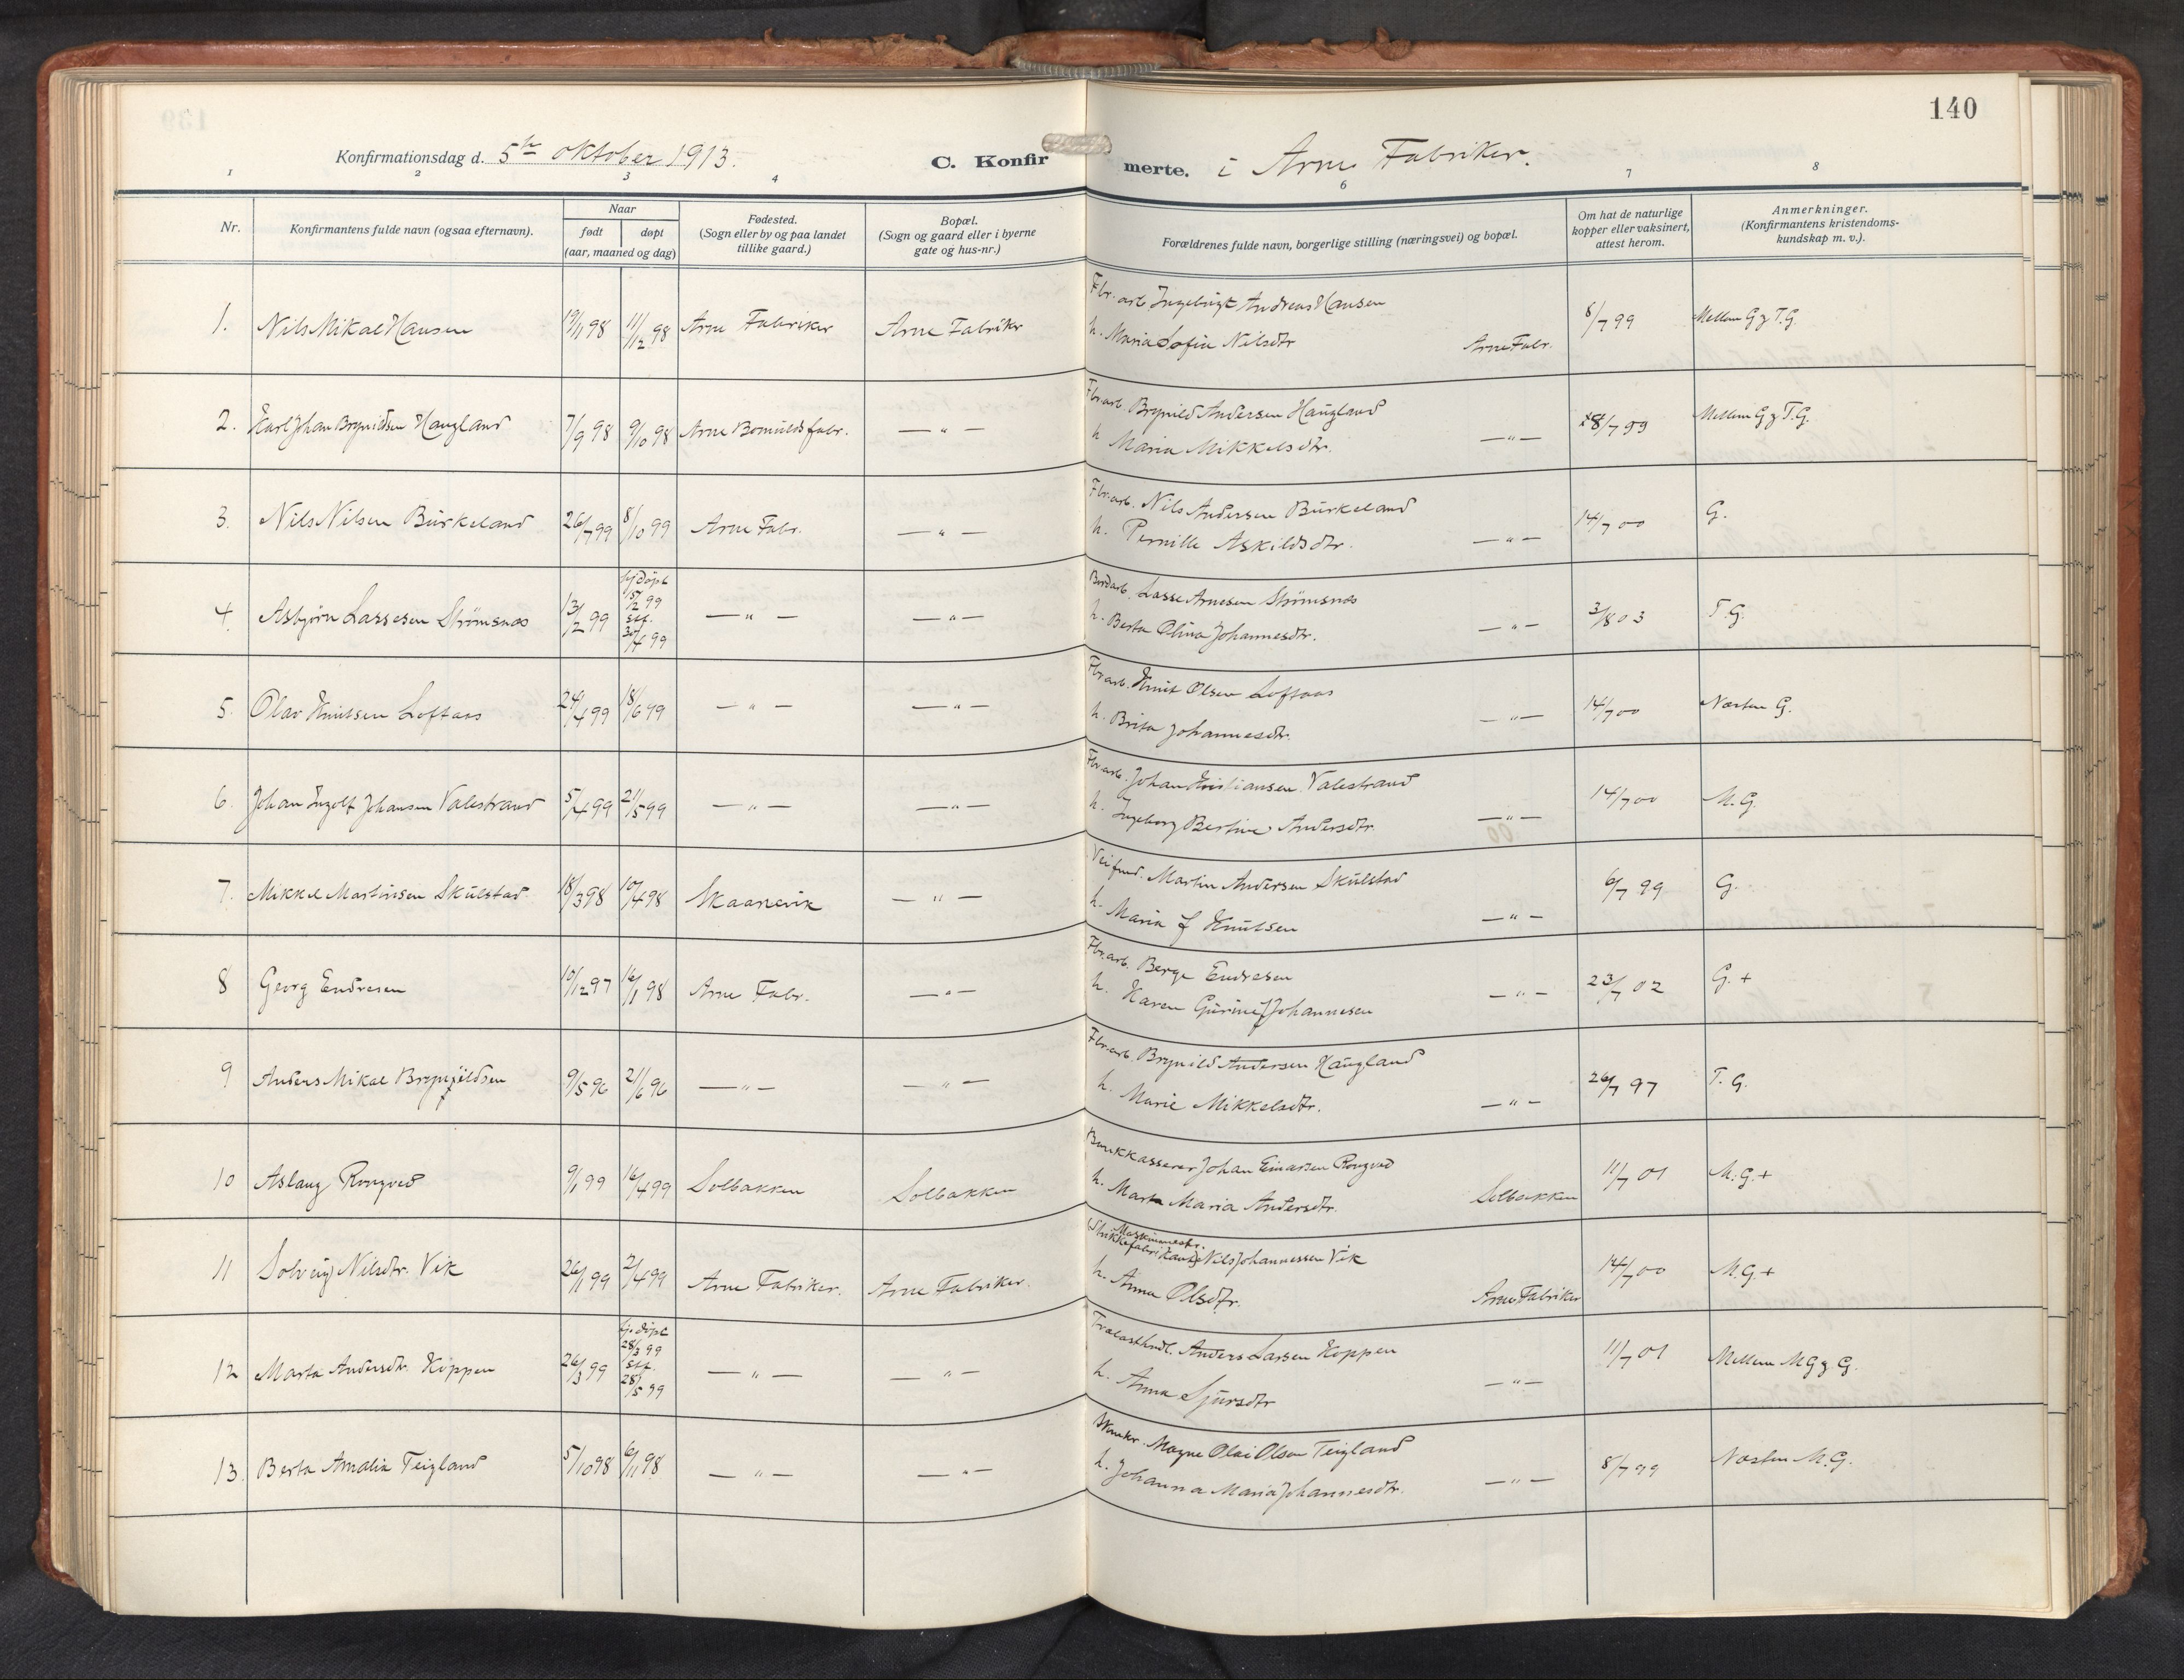 140
Konfirmationsdag d. 5te oktober 1913. C. Konfirmerte. i Arne Fabriker.
1 2 3 4 6 7 8
Nr.
Konfirmantens fulde navn (ogsaa efternavn).
Naar
født døpt
(aar, maaned og dag)
Fødested.
(Sogn eller by og paa landet
tillike gaard.)
Bopæl.
(Sogn og gaard eller i byerne
gate og hus-nr.)
Forældrenes fulde navn, borgerlige stilling (næringsvei) og bopæl.
Om hat de naturlige
kopper eller vaksinert,
attest herom.
Anmerkninger.
(Konfirmantens kristendoms-
kundskap m. v.).
1. Nils Mikal Hansen 19/11 98 11/12 98 Arne Fabriker Arne Fabriker Fbr. arb. Ingebrigt Andreas Hansen 8/7 99 Mellem G og T.G.
h. Maria Sofia Nilsdtr Arne Fabr.
2. Karl Johan Brynildsen Haugland 7/9 98 9/10 98 Arne Bomulds fabr. —"— Fbr. arb. Brynild Andersen Haugland 8/7 99 Mellem G og T.G.
h Maria Mikkelsdtr. —"—
3. Nils Nilsen Bürkeland 26/7 99 8/10 99 Arne Fabr. —"— Fbr. arb. Nils Andersen Bürkeland 14/7 00 G.
h. Pernille Askildsdtr. —"—
4. Asbjørn Lassesen Strømsnes 13/2 99 hj. døpt 15/2 99 stf. 30/4 99 —"— —"— Lasse Arnesen Strømsnes 3/8 03 T.G.
h. Berta Olina Johannesdtr. —"—
5. Olav Knutsen Loftaas 24/4 99 18/6 99 —"— —"— Fbr arb. Knut Olsen Loftaas 14/7 00 Næsten G.
h. Brita Johannesdtr. —"—
6. Johan Ingolf Johansen Valestrand 5/4 99 21/5 99 —"— —"— Fbr arb. Johan Kristiansen Valestrand 14/7 00 M.G.
h. Ingeborg Bertine Andersdtr. —"—
7. Mikkel Martinsen Skülstad 18/3 98 10/4 98 Skaanevik —"— Martin Andersen Skülstad 6/7 99 G.
h. Maria f Knutsen —"—
8 Georg Endresen 10/12 97 16/1 98 Arne Fabr. —"— Fbr. arb. Berge Endresen 23/7 02 G. +
h. Karen Gurine f Johannesen —"—
9 Anders Mikal Brynjildsen 9/5 96 21/6 96 —"— —"— Fbr. arb. Brynild Andersen Haugland 26/7 97 T. G.
h. Marie Mikkelsdtr. —"—
10 Aslaug Rongved 9/1 99 16/4 99 Solbakken Solbakken Bankkasserer Johan Einarsen Rongved 11/7 01 M.G. +
h. Marta Maria Andersdtr. Solbakken
11 Solveig Nilsdtr. Vik 26/1 99 2/4 99 Arne Fabriker. Arne Fabriker. Maskinmestr.
(Strikkefabrikant) Nils Johannessen Vik 14/7 00 M.G. +
h. Anna Olsdtr. Arne Fabriker
12 Marta Andersdtr. Koppen 26/3 99 hj. døpt 28/3 99 stf. 28/5 99 —"— —"— Trælasthndl. Anders Larsen Koppen 11/7 01 Mellem MG og G.
h. Anna Sjursdtr —"—
13. Berta Amalia Teigland 5/10 98 6/11 98 —"— —"— Magne Olai Olsen Teigland 8/7 99 Næsten M.G.
h. Johanna Maria Johannesdtr. —"—